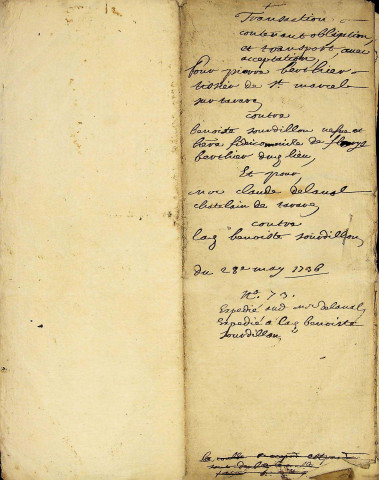 Transaction
contenant obligation,
et transport, avec
acceptation,
Pour pierre berthier
tissier de st marcel
sur tarare,
contre
benoiste sourdillon vefve et
here fideicommise de
berthier dud lieu,
Et pour
mre claude delaval
chatelain de tarare,
contre
lad benoiste sourdillon,
du 28e may 1736
No. 73.
Expedié aud mre delaval,
Expedié a lad benoiste
sourdillon,